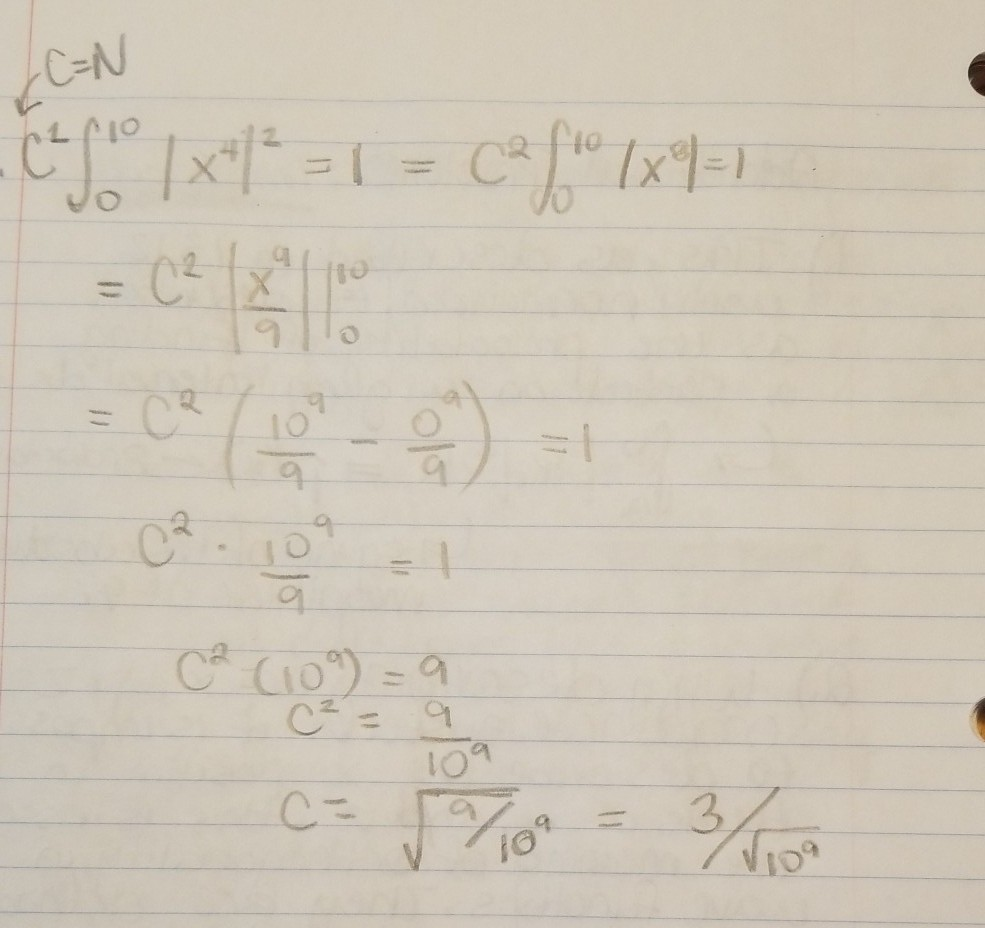 C=N
C² ∫₀¹⁰ |x⁴|² = 1 = C² ∫₀¹⁰ |x⁸| = 1
= C² |x⁹/9| |₀¹⁰
= C² (10⁹/9 − 0⁹/9) = 1
C² · 10⁹/9 = 1
C² (10⁹) = 9
C² = 9/10⁹
C = √(9/10⁹) = 3/√10⁹